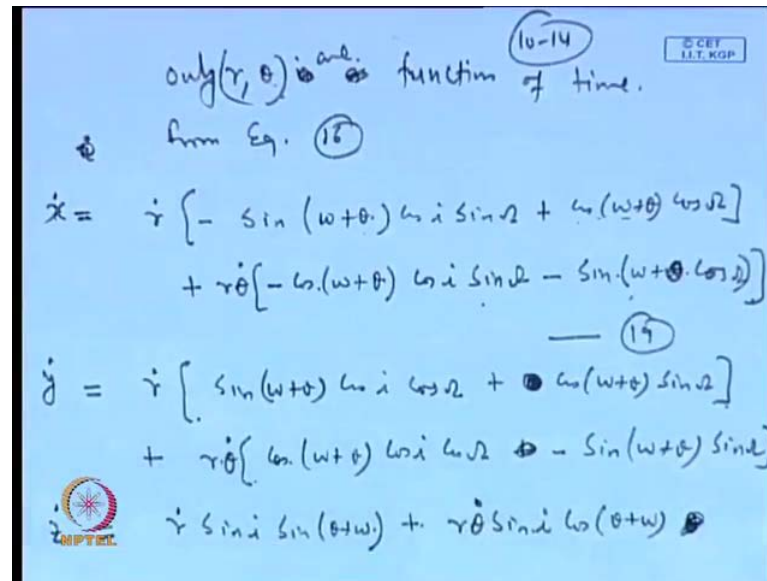 10-14
© CET
I.I.T. KGP
only (r, θ) are function of time.
from Eq. 16
ẋ = ṙ [ - sin (ω+θ) cos i sin Ω + cos (ω+θ) cos Ω ]
+ r θ̇ [ - cos (ω+θ) cos i sin Ω - sin (ω+θ. cos Ω) ]
— 19
ẏ = ṙ [ sin (ω+θ) cos i cos Ω + cos (ω+θ) sin Ω ]
+ r θ̇ [ cos (ω+θ) cos i cos Ω - sin (ω+θ) sin Ω ]
ż ṙ sin i sin (θ+ω) + r θ̇ sin i cos (θ+ω)
NPTEL